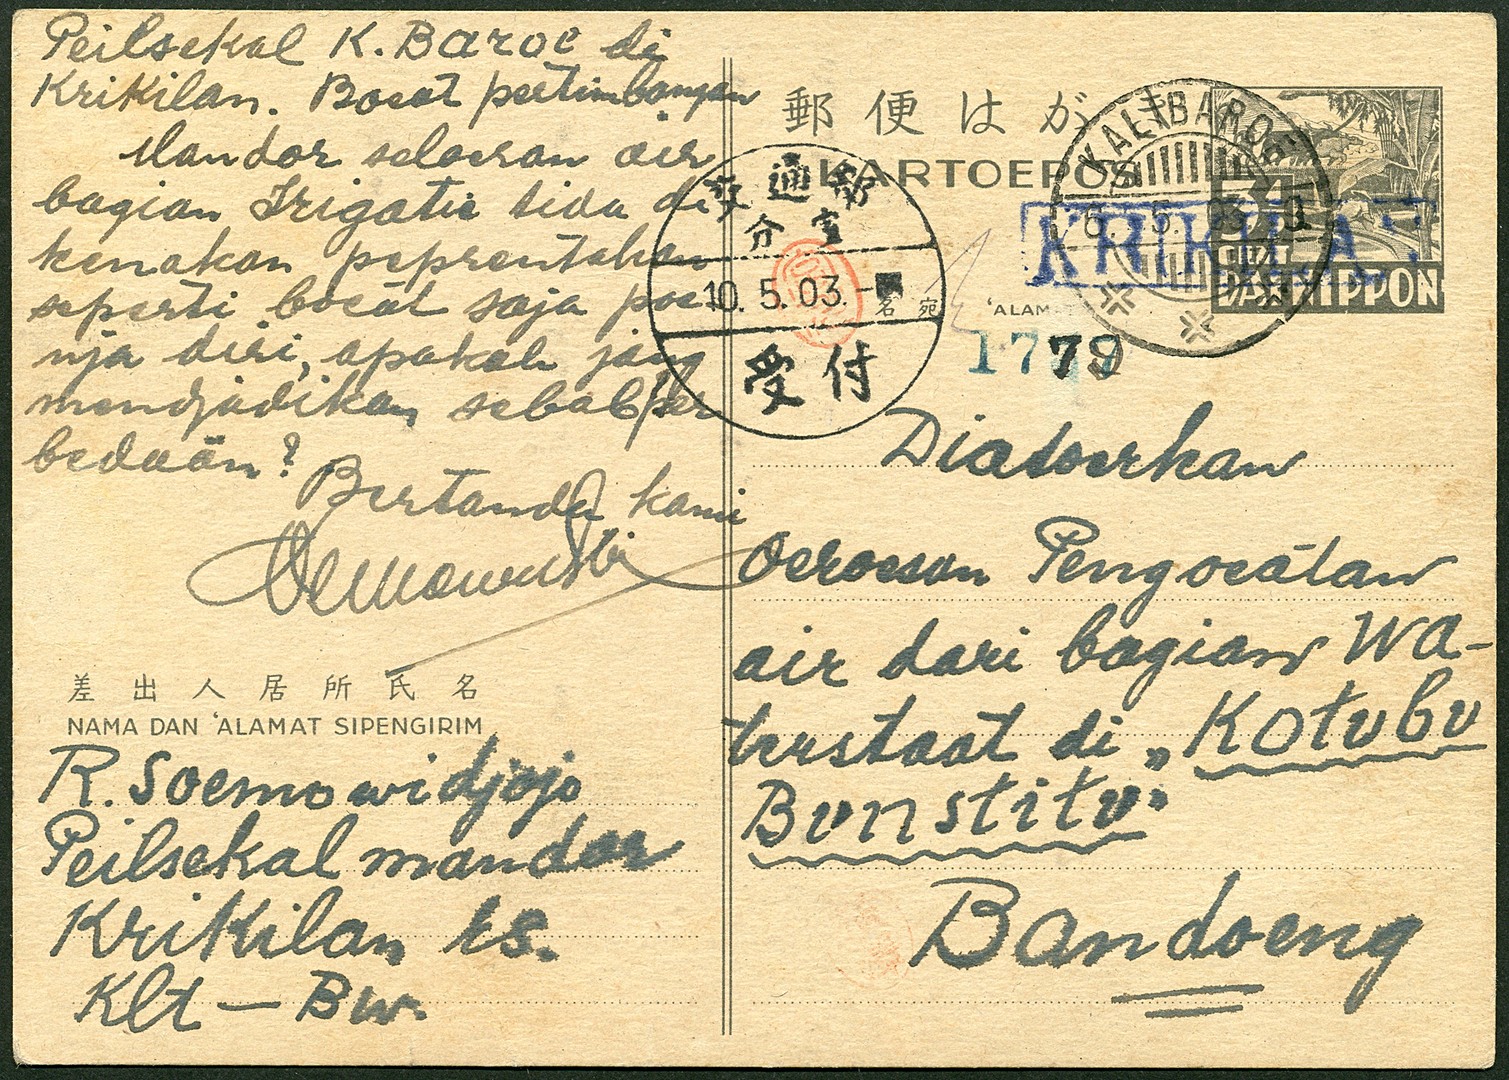 Peilsekal K. Baroe di
Krikilan. Boeat pertimbangan
Mandor seloeran air
bagian Irigatie tida di
kenakan peprentahan
seperti boeat saja poe
nja diri, apakah jang
mendjadikan sebab/per
bedaän?
Bertanda kami
差出人居所氏名
NAMA DAN 'ALAMAT SIPENGIRIM
R. Soemowidjojo
Peilsekal mandor
Krikilan ls.
Klt - Bw.
郵便はが
KARTOEPOS
KALIBAROE
6. 5. 03
KRIKILA
3½
DAI NIPPON
交通部
分室
10.5.03.-
受付
名宛
'ALAMA
Diatoerkan
Oeroesan Pengoeatan
air dari bagian Wa-
terstaat di „Kotubu
Bunsitu"
Bandoeng